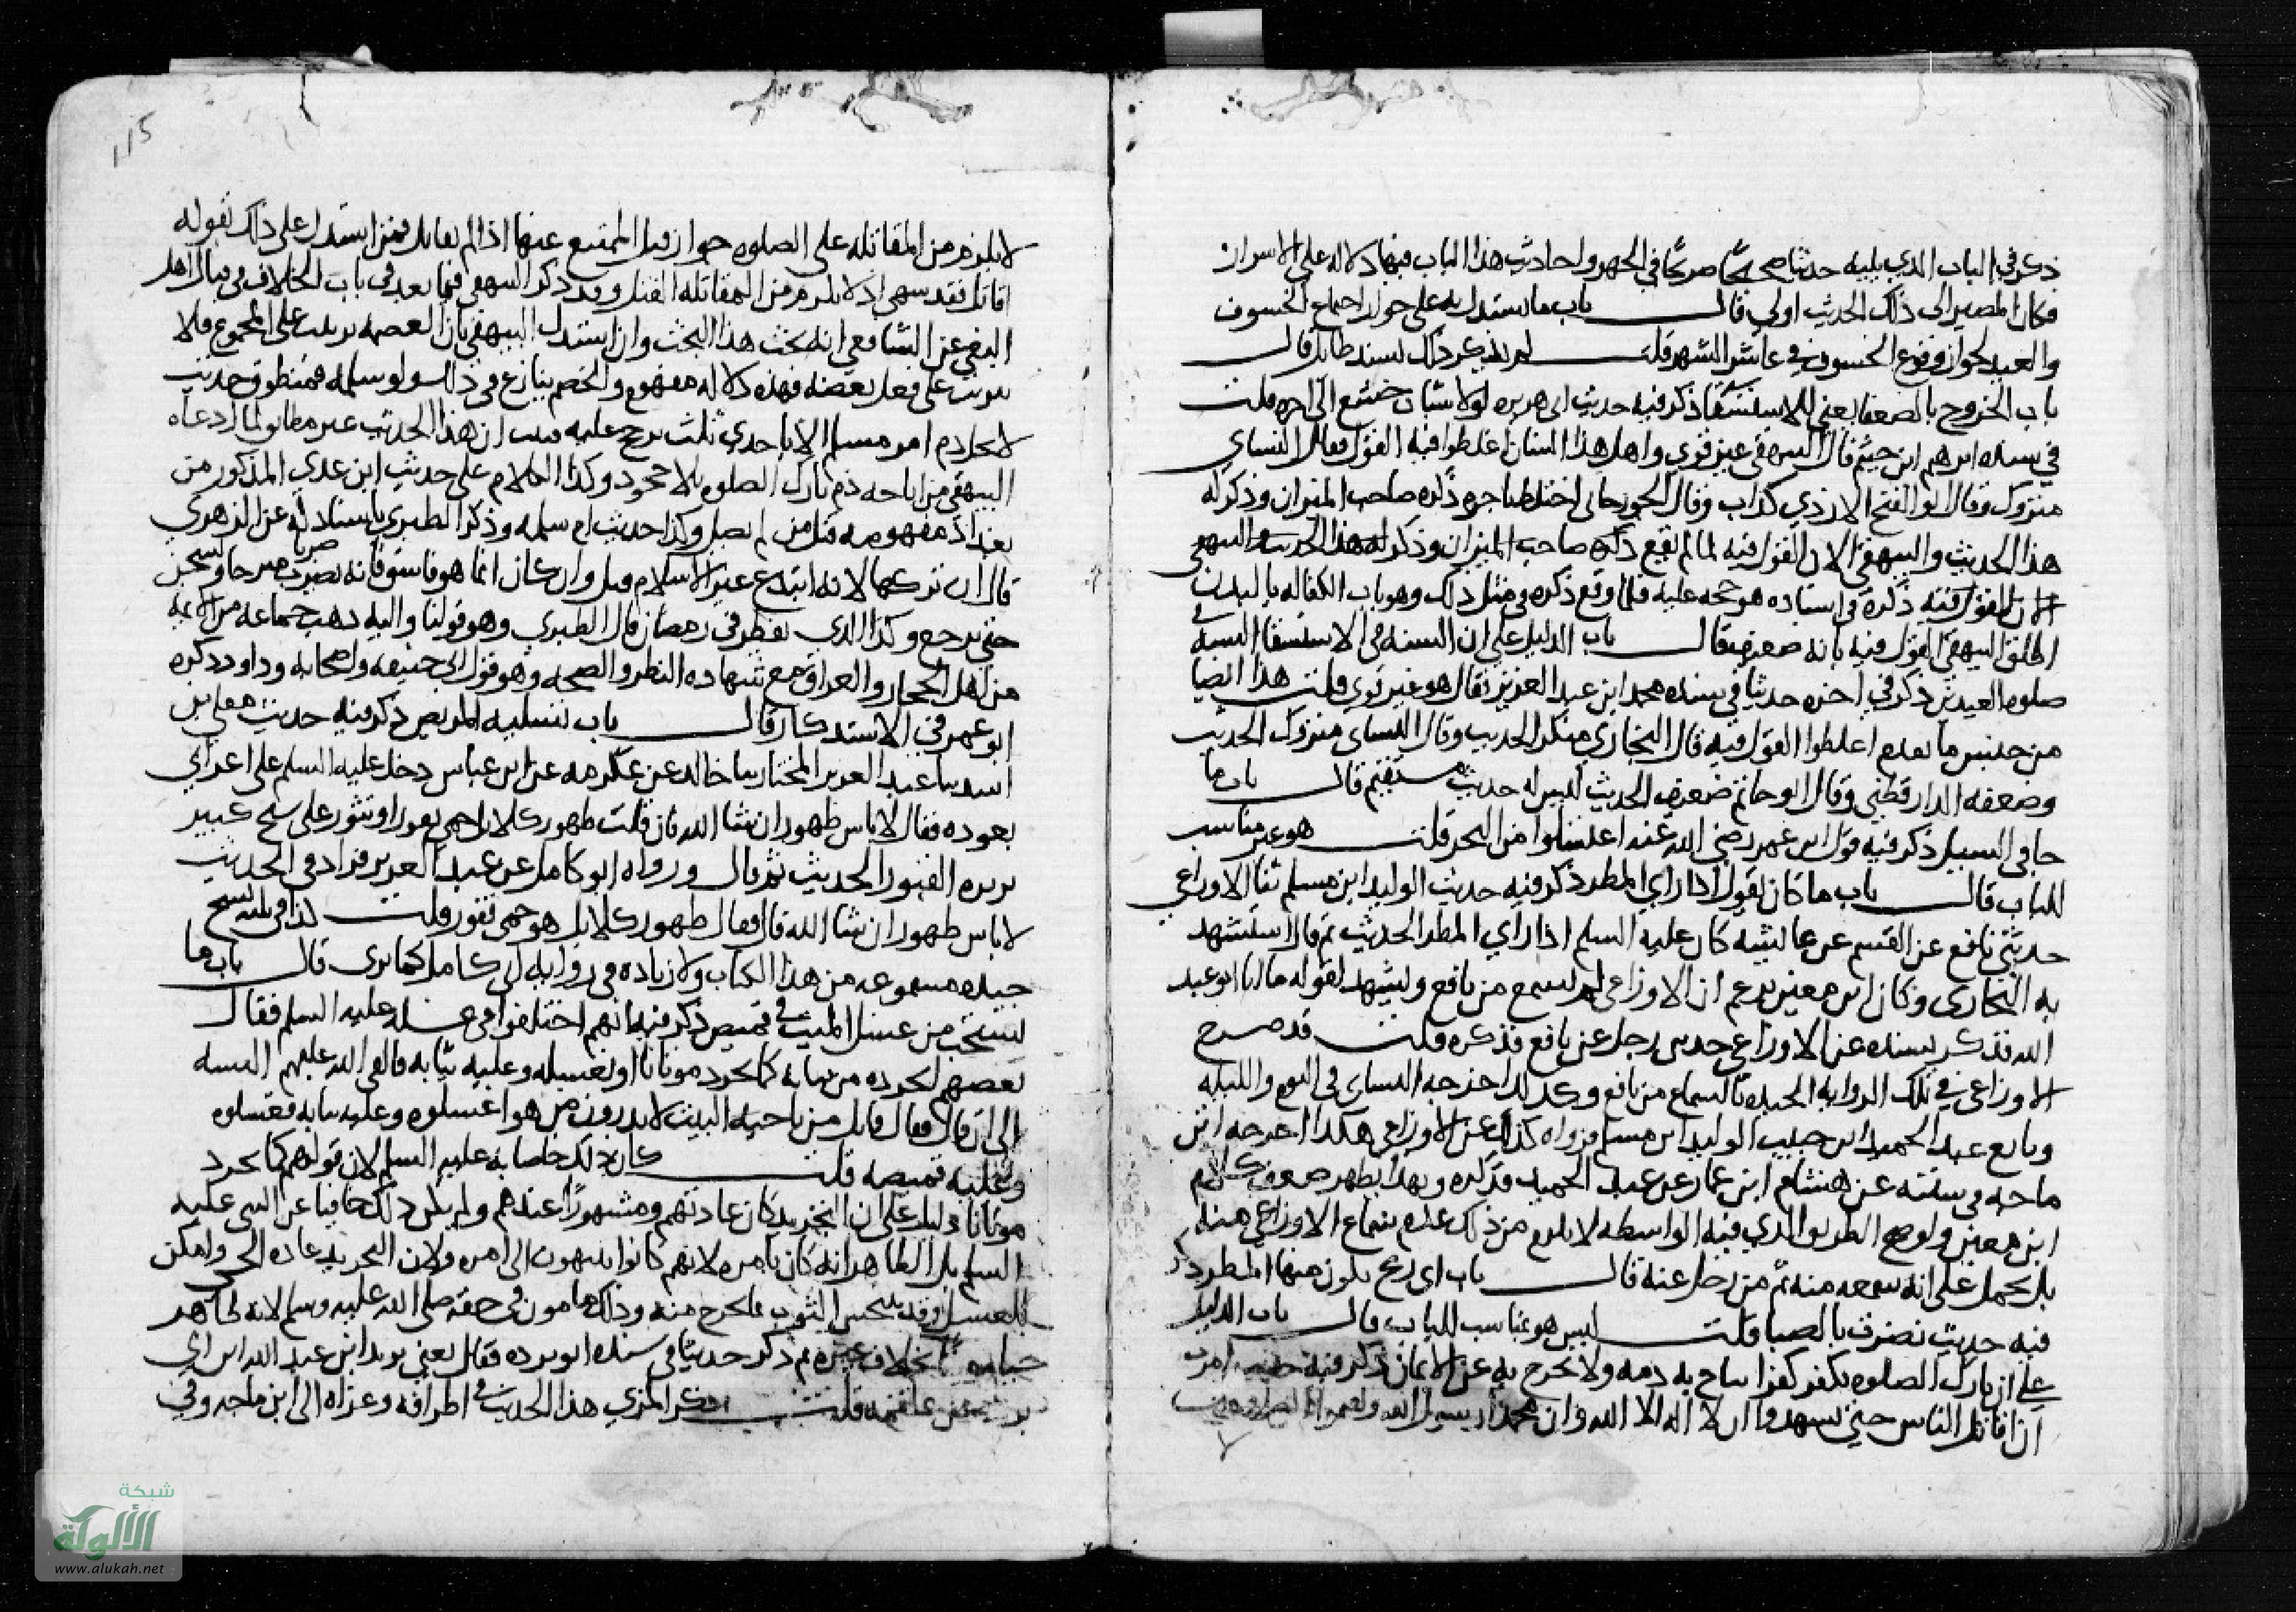 ذكر في الباب الذي يليه حديثا صحيحا صريحا في الجهر واحاديث هذا الباب فيها دلاله على الاسرار
فكان المصير الى ذلك الحديث اولى قال باب ما يستدل به على جواز اجتماع الخسوف
والعيد لجواز وقوع الخسوف في عاشر الشهر قلت لم يذكر ذلك بسند طائل قال
باب الخروج بالضعفا يعني للاستسقا ذكر فيه حديث ابي هريره لولا شباب خشع الى اخره قلت
في سنده ابرهيم ابن خثيم قال البيهقي غير قوي واهل هذا الشان اغلظوا فيه القول فقال النساي
متروك وقال ابو الفتح الازدي كذاب وقال الجوزجاني اختلط باخره ذكره صاحب الميزان وذكر له
هذا الحديث والبيهقي الان القول فيه لما لم يقع
الان القول فيه ذكره في اسناده هو حجه عليه فلما وقع ذكره في مثل ذلك وهو باب الكفاله بالبدن
اطلق البيهقي القول فيه بانه ضعيف قال باب الدليل على ان السنه في الاستسقا السنه في
صلوه العيدين ذكر في اخره حديثا في سنده محمد ابن عبد العزيز فقال هو غير قوي قلت هذا ايضا
من جنس ما تقدم اغلظوا القول فيه قال البخاري منكر الحديث وقال النساي متروك الحديث
وضعفه الدارقطني وقال ابو حاتم ضعيف الحديث ليس له حديث مستقيم قال باب ما
جا في السيل ذكر فيه قول ابن عمر رضي الله عنه اغتسلوا من البحر قلت هو غير مناسب
للباب قال باب ما كان يقول اذا راي المطر ذكر فيه حديث الوليد ابن مسلم ثنا الاوزاعي
حدثني نافع عن القسم عن عائشه كان عليه السلم اذا راي المطر الحديث ثم قال استشهد
به البخاري وكان ابن معين يزعم ان الاوزاعي لم يسمع من نافع ويشهد لقوله ما انا ابو عبد
الله فذكر بسنده عن الاوزاعي حدثني رجل عن نافع فذكره قلت قد صرح
الاوزاعي في تلك الروايه الجيده بالسماع من نافع وكذلك اخرجه النساي في اليوم والليله
وتابع عبد الحميد ابن حبيب الوليد ابن مسلم فرواه كذلك عن الاوزاعي هكذا اخرجه ابن
ماجه في سننه عن هشام ابن عمار عن عبد الحميد فذكره وبهذا يظهر ضعف كلام
ابن معين ولو صح الطريق الذي فيه الواسطه لا يلزم من ذلك عدم سماع الاوزاعي منه
بل يحمل على انه سمعه منه ثم من رجل عنه قال باب اي ريح يكون منها المطر ذكر
فيه حديث نصرت بالصبا قلت ليس هو بمناسب للباب قال باب الدليل
على ان تارك الصلوه يكفر كفرا يباح به دمه ولا يخرج به عن الايمان ذكر فيه حديث امرت
ان اقاتل الناس حتى يشهدوا ان لا اله الا الله وان محمدا رسول الله ويقيموا الصلوه قلت
115
لا يلزم من المقاتله على الصلوه جواز قتل الممتنع عنها اذا لم يقاتل فمن استدل على ذلك بقوله
اقاتل فقد سهي اذ لا يلزم من المقاتله القتل وقد ذكر البيهقي فيما بعد في باب الخلاف في قتال اهل
البغي عن الشافعي انه بحث هذا البحث وان استدل البيهقي بان العصمه ترتبت على المجموع فلا
ترتب على فعل بعضه فهذه دلاله مفهوم والخصم ينازع في ذلك ولو سلمه فمنطوق حديث
لا يحل دم امر مسلم الا باحدى ثلث يرجح عليه قلت ان هذا الحديث غير مطابق لما ادعاه
البيهقي من اباحه دم تارك الصلوه بلا جحود وكذا الكلام على حديث ابن عدي المذكور من
بعد اذ مفهومه قتل من لم يصل وكذا حديث ام سلمه وذكر الطبري باسناد له عن الزهري
قال ان تركها لانه ابتدع غير الاسلام قتل وان كان انما هو فاسق فانه يضرب ضربا مبرحا ويسجن
حتى يرجع وكذا الذي يفطر في رمضان قال الطبري وهو قولنا واليه ذهب جماعه من الايمه
من اهل الحجاز والعراق مع شهاده النظر والصحه وهو قول ابي حنيفه واصحابه وداود ذكره
ابو عمر في الاستذكار قال باب تسليه المريض ذكر فيه حديث معلى بن
اسد ثنا عبد العزيز المختار ثنا خالد عن عكرمه عن ابن عباس دخل عليه السلم على اعرابي
يعوده فقال لا باس طهور ان شا الله قال قلت طهور كلا بل حمى تفور او تثور على شيخ كبير
تزيره القبور الحديث ثم قال ورواه ابو كامل عن عبد العزيز فزاد في الحديث
لا باس طهور ان شا الله قال فقال طهور كلا بل هو حمى تفور قلت كذا في ثلث نسخ
جيده مسموعه من هذا الكتاب ولا زياده في روايه ابي كامل كما ترى قال باب ما
يستحب من غسل الميت في قميص ذكر فيه انهم اختلفوا في غسله عليه السلم فقال
بعضهم نجرده من ثيابه كما نجرد موتانا او نغسله وعليه ثيابه فالقى الله عليهم السنه
الى ان قال فقال قائل من ناحيه البيت لا يدرون من هو اغسلوه وعليه ثيابه فغسلوه
وعليه قميصه قلت كان ذلك خاصا به عليه السلم لان قولهم كما نجرد
موتانا دليل على ان التجريد كان عادتهم ومشهورا عندهم ولم يكن ذلك خافيا عن النبي عليه
السلم بل الظاهر انه كان بامره لانهم كانوا ينتهون الى امره ولان التجريد عاده الحي وامكن
للغسل وقد ينجس الثوب بما يخرج منه وذلك مامون في حقه صلى الله عليه وسلم لانه طاهر
حيا وميتا بخلاف غيره ثم ذكر حديثا في سنده ابو برده فقال يعني بريد ابن عبد الله ابن ابي
برده عن علقمه قلت ذكر المزي هذا الحديث في اطرافه وعزاه الى ابن ماجه وفي
شبكة
الألوكة
www.alukah.net